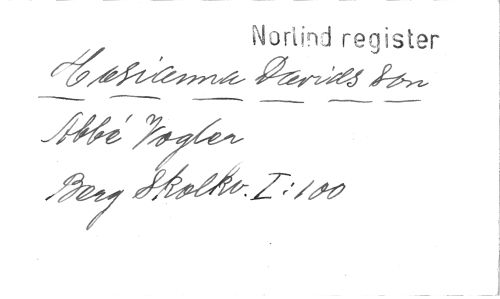 Norlind register
Hosianna Davids Son
Abbé Vogler
Berg Skolkv. I:100